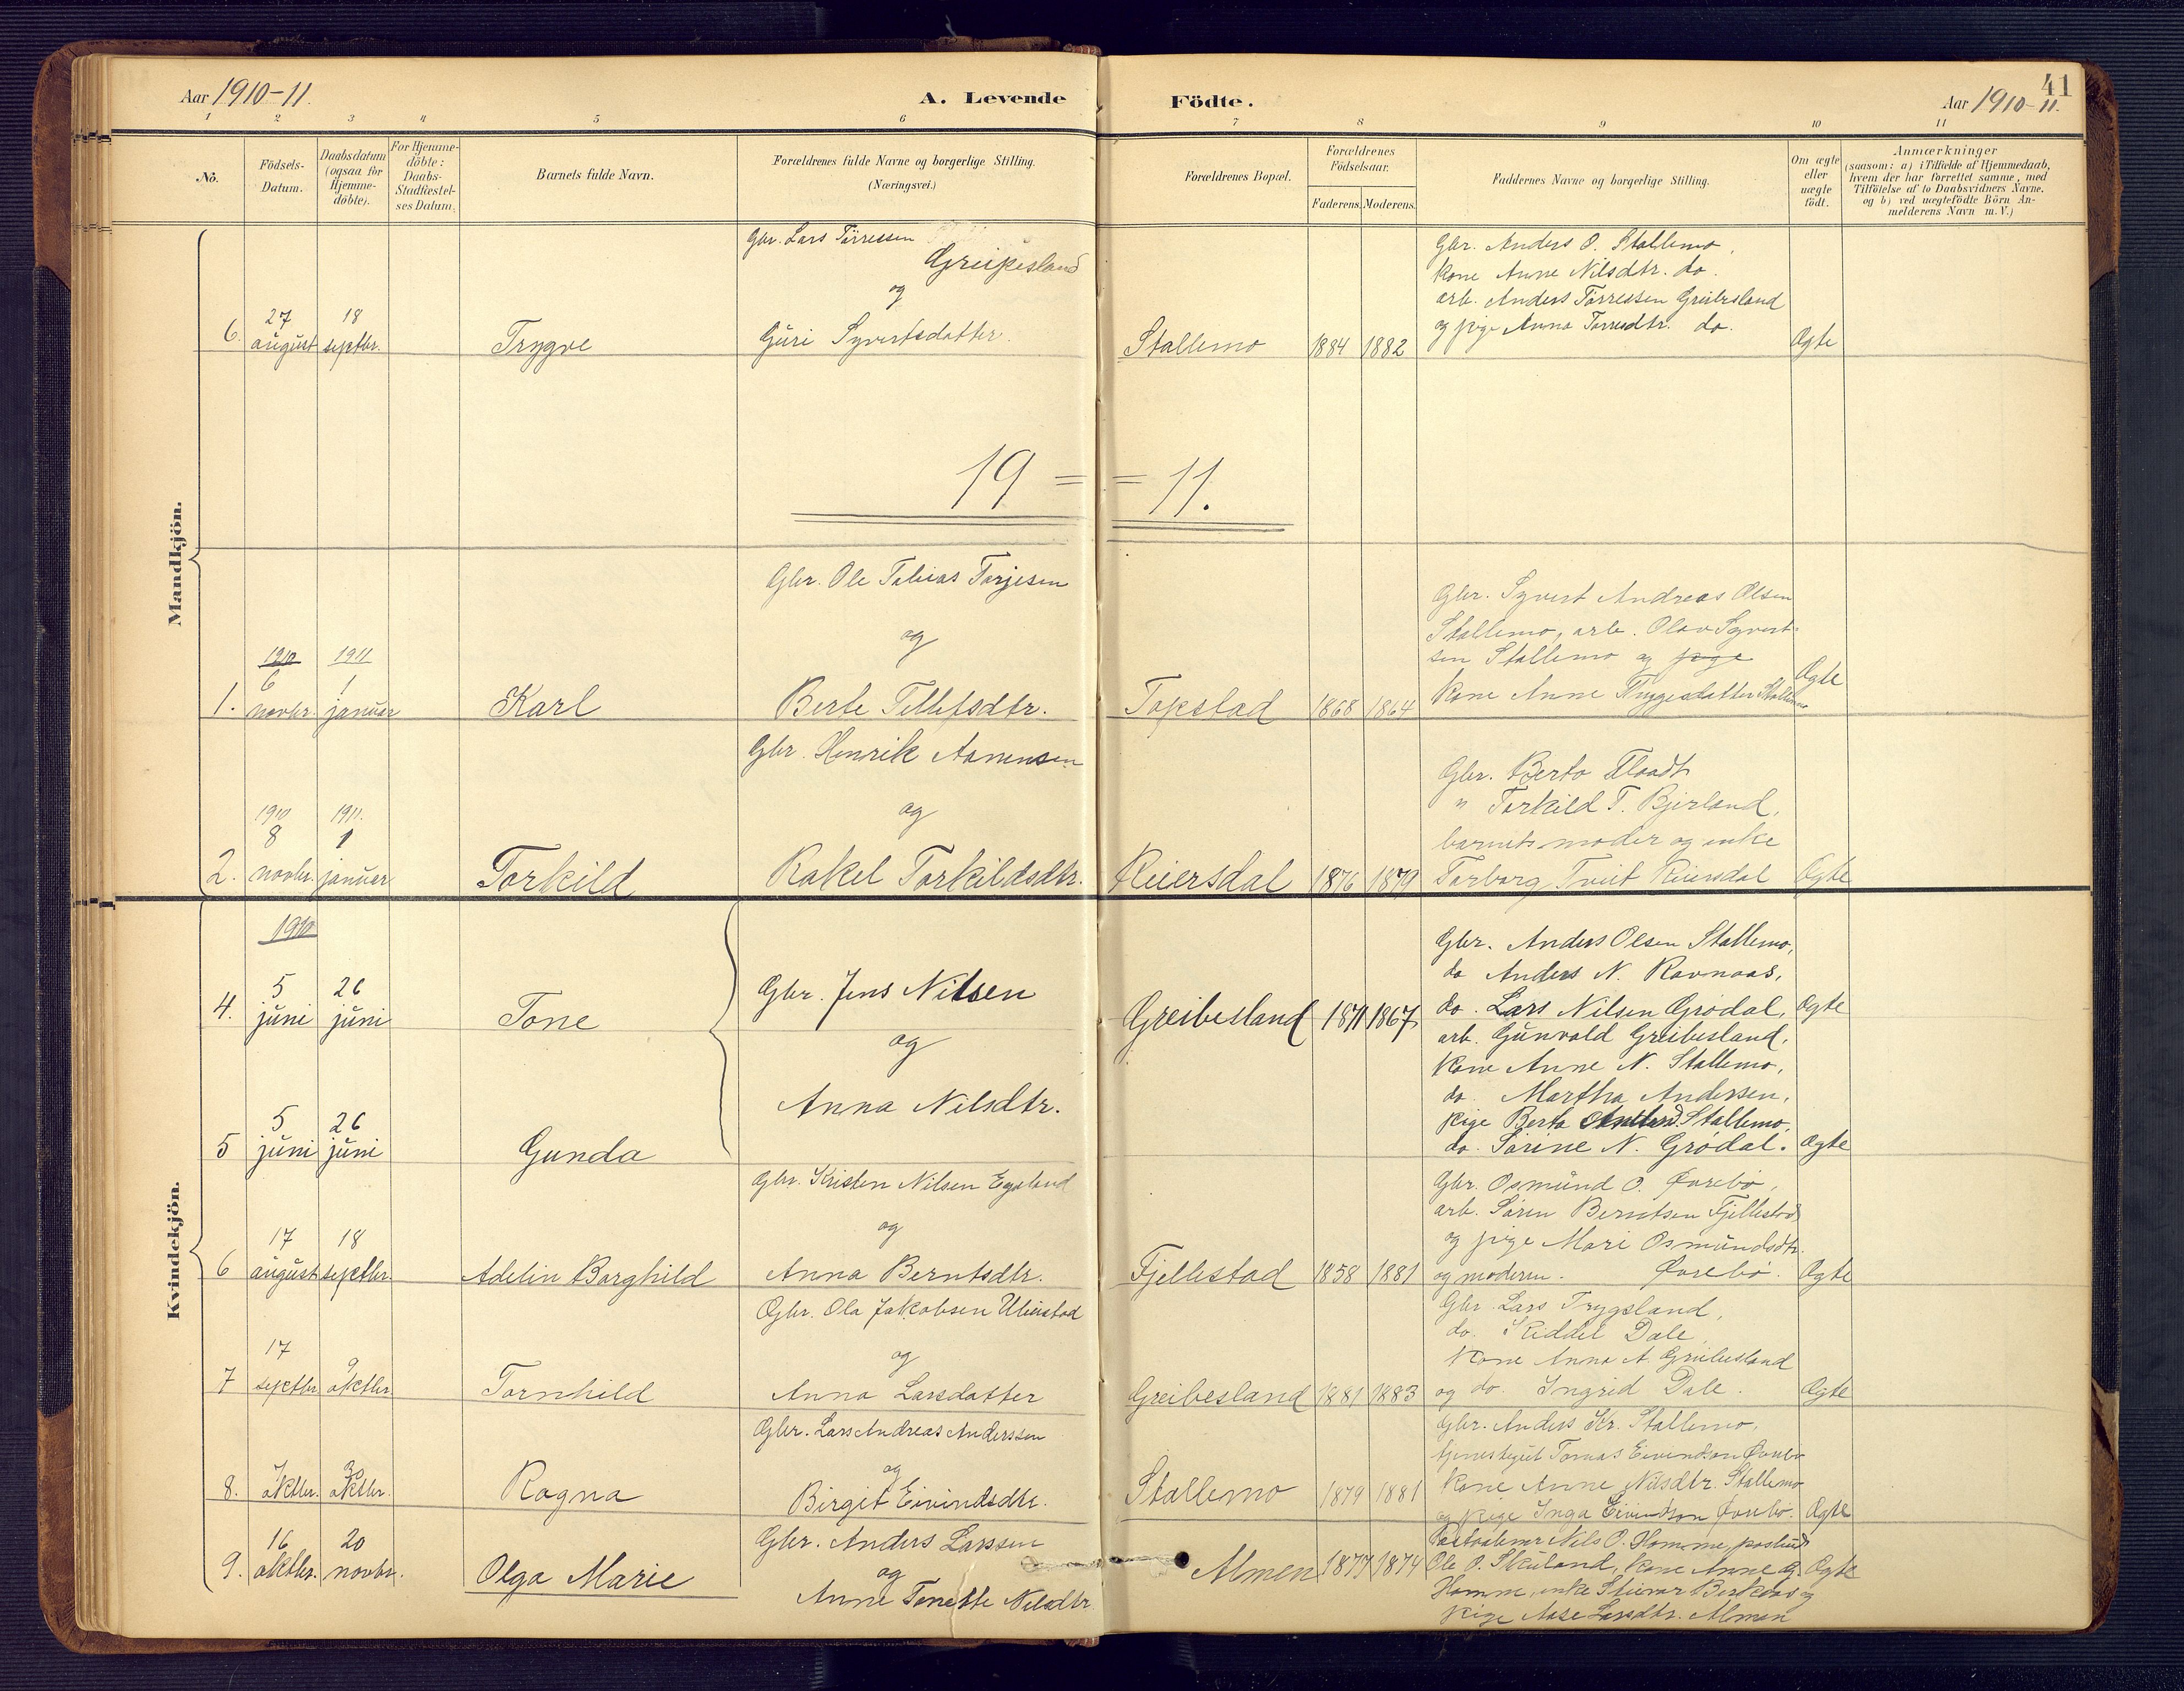 41
Aar 1910-11.
A. Levende Födte.
Aar 1910-11.
1 2 3 4 5 6 7 8 9 10 11
No.
Födsels-
Datum.
Daabsdatum
(ogsaa for
Hjemme-
döbte).
For Hjemme-
döbte:
Daabs-
Stadfæstel-
ses Datum.
Barnets fulde Navn.
Forældrenes fulde Navne og borgerlige Stilling.
(Næringsvei.)
Forældrenes Bopæl.
Forældrenes
Födselsaar.
Faderens. Moderens.
Faddernes Navne og borgerlige Stilling.
Om ægte
eller
uægte
födt.
Anmærkninger
(saasom: a) i Tilfælde af Hjemmedaab,
hvem der har forrettet samme, med
Tilföielse af to Daabsvidners Navne.
og b) ved uægtefödte Börn An-
melderens Navn m. V.)
Mandkjön.
6. 27 august
18 septbr.
Trygve
Gbr. Lars Tørressen
Greipesland
og
Guri Syvertsdatter.
Stallemo
1884 1882
Gbr. Anders O. Stallemo,
kone Anne Nilsdtr. do.
arb. Anders Tørressen Greibesland
og pige Anna Tørresdtr. do.
Ægte
19 = = 11.
1. 1910
6
novbr.
1911
1
januar
Karl
Gbr. Ole Tobias Torjesen
og
Berte Tellefsdtr.
Topstad
1868 1864
Gbr. Syvert Andreas Olsen
Stallemo, arb. Olav Syvert-
sen Stallemo og pige
kone Anne Tryggesdatter Stallemo
Ægte
2. 1910
8
novbr.
1911.
1
januar
Torkild
Gbr. Henrik Aanensen
og
Rakel Torkildsdtr.
Reiersdal
1876 1879
Gbr. Berto Flaadt
" Torkild T. Bjerland,
barnets moder og enke
Torborg Tveit Reiersdal
Ægte
Kvindekjön.
1910
4. 5 juni
26 juni
Tone
Gbr. Jens Nilsen
og
Anna Nilsdtr.
Greibesland
1871 1867
Gbr. Anders Olsen Stallemo,
do Anders N. Ravnaas,
do. Lars Nilsen Grødal,
arb. Gunvald Greibesland,
kone Anne N. Stallemo,
do. Martha Andersen,
pige Berta Stallemo,
do. Sørine N. Grødal.
Ægte
5 5 juni
26 juni
Gunda
Ægte
6 17 august
18 septbr.
Adelin Borghild
Gbr. Kristen Nilsen Egeland
og
Anna Berntsdtr.
Fjellestad
1858 1881
Gbr. Osmund O. Øvrebø,
arb. Søren Berntsen Fjellestad
og pige Mari Osmundsdtr.
og moderen. Øvrebø.
Ægte
7 17 septbr
9 oktbr.
Tornhild
Gbr. Ola Jakobsen Ulimstad
og
Anna Larsdatter
Greibesland
1881 1883
Gbr. Lars Trygsland,
do. Kiddel Dale,
kone Anna A. Greibesland
og do. Ingrid Dale.
Ægte
8. oktbr.
oktbr.
Ragna
Gbr. Lars Andreas Anderssen
og
Birgit Eivindsdtr.
Stallemo
1879 1881
Gbr. Anders Kr. Stallemo,
Tomas Eivindson Øvrebø
kone Anne Nilsdtr. Stallemo
og pige Inga Eivindson Øvrebø.
Ægte
9. 16 oktbr.
20 novbr.
Olga Marie
Gbr. Anders Larssen
og
Anne Tonette Nilsdtr.
Almen
1877 1874
Nils O. Homme,
Ole O. Skuland, kone Anne G.
Homme, enke og
pige Aase Larsdtr. Almen
Ægte